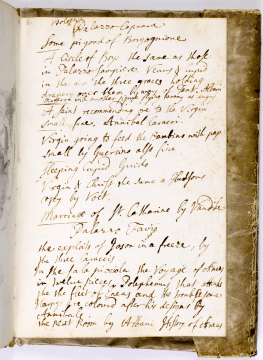 Palazzo Caprara
Some pi good of Borgognione
A Circle of Boys the same as those
in Palazzo Sampiere Venus & Cupid
in the air the three graces holding
drapery over them by
A Saint recommending one to the Virgin
small fine, Annibel Caracci
Virgin going to feed the Bambino with pap
small by Guercino also fine
Sleeping Cupid Guido
Virgin & Christ the same a
Copy by
Marriage of St. Catharine by
Palazzo Favi
the exploits of Jason in a frieze, by
the three Caraccis
In the Sala piccola the Voyage of Æneas
in twelve pieces, Polephemus that attacks
the fleet of Æneas and the
Harpyes coloured after his designs by
Annibale
the next Room by Albani History of Æneas